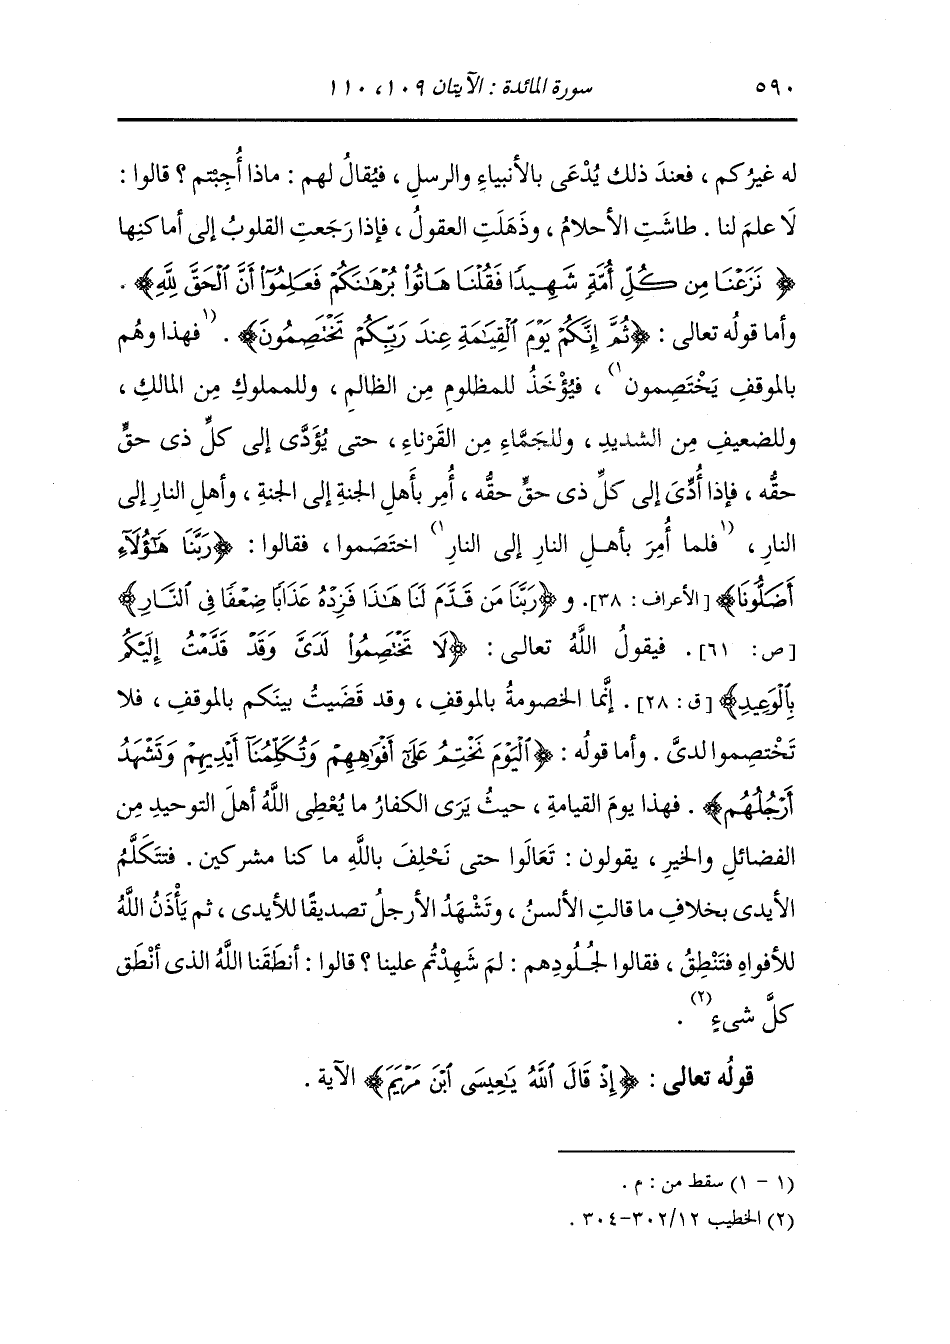 ٥٩٠ سورة المائدة : الآيتان ١٠٩، ١١٠
له غيرُكم ، فعندَ ذلك يُدْعَى بالأنبياءِ والرسلِ ، فيُقالُ لهم : ماذا أُجِبْتم ؟ قالوا :
لَا علمَ لنا . طاشَتِ الأحلامُ ، وذَهَلَتِ العقولُ ، فإذا رَجَعتِ القلوبُ إلى أماكنِها
﴿ نَزَعْنَا مِن كُلِّ أُمَّةٍ شَهِيدًا فَقُلْنَا هَاتُوا۟ بُرْهَٰنَكُمْ فَعَلِمُوٓا۟ أَنَّ ٱلْحَقَّ لِلَّهِ﴾ .
وأما قولُه تعالى : ﴿ثُمَّ إِنَّكُمْ يَوْمَ ٱلْقِيَٰمَةِ عِندَ رَبِّكُمْ تَخْتَصِمُونَ﴾ . (١فهذا وهُم
بالموقفِ يَخْتَصِمون١) ، فيُؤْخَذُ للمظلومِ مِن الظالمِ ، وللمملوكِ مِن المالكِ ،
وللضعيفِ مِن الشديدِ ، وللجَمَّاءِ مِن القَرْناءِ ، حتى يُؤَدَّى إلى كلِّ ذى حقٍّ
حقُّه ، فإذا أُدِّىَ إلى كلِّ ذى حقٍّ حقُّه ، أُمِر بأهلِ الجنةِ إلى الجنةِ ، وأهلِ النارِ إلى
النارِ ، (١فلما أُمِرَ بأهلِ النارِ إلى النارِ١) اختَصَموا ، فقالوا : ﴿رَبَّنَا هَٰٓؤُلَآءِ
أَضَلُّونَا﴾ [الأعراف: ٣٨]. و ﴿رَبَّنَا مَن قَدَّمَ لَنَا هَٰذَا فَزِدْهُ عَذَابًا ضِعْفًا فِى ٱلنَّارِ﴾
[ص: ٦١] . فيقولُ اللَّهُ تعالى : ﴿لَا تَخْتَصِمُوا۟ لَدَىَّ وَقَدْ قَدَّمْتُ إِلَيْكُم
بِٱلْوَعِيدِ﴾ [ق: ٢٨] . إنَّما الخصومةُ بالموقفِ ، وقد قَضَيتُ بينَكم بالموقفِ ، فلا
تَخْتصِموا لدىَّ . وأما قولُه : ﴿ٱلْيَوْمَ نَخْتِمُ عَلَىٰٓ أَفْوَٰهِهِمْ وَتُكَلِّمُنَآ أَيْدِيهِمْ وَتَشْهَدُ
أَرْجُلُهُم﴾ . فهذا يومَ القيامةِ ، حيثُ يَرَى الكفارُ ما يُعْطِى اللَّهُ أهلَ التوحيدِ مِن
الفضائلِ والخيرِ ، يقولون : تَعَالَوا حتى نَحْلِفَ باللَّهِ ما كنا مشركين . فتتكَلَّمُ
الأيدى بخلافِ ما قالتِ الألسنُ ، وتَشْهَدُ الأرجلُ تصديقًا للأيدى ، ثم يَأْذَنُ اللَّهُ
للأفواهِ فتَنْطِقُ ، فقالوا لجُلُودِهم : لمَ شَهِدْتُم علينا ؟ قالوا : أنطَقَنا اللَّهُ الذى أَنْطَق
كلَّ شىءٍ(٢) .
قولُه تعالى : ﴿إِذْ قَالَ ٱللَّهُ يَٰعِيسَى ٱبْنَ مَرْيَمَ﴾ الآية .
(١ - ١) سقط من : م .
(٢) الخطيب ٣٠٢/١٢-٣٠٤ .